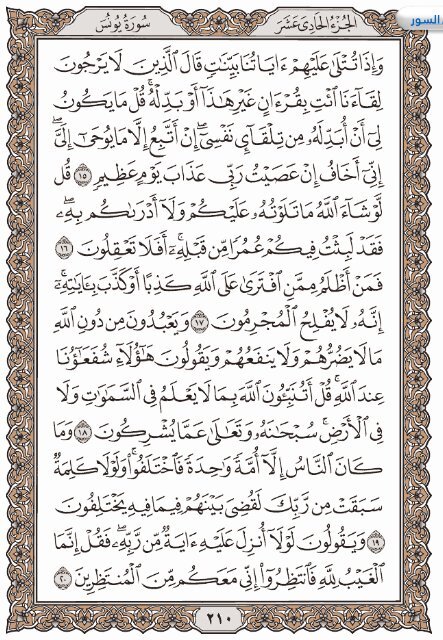 السور
الجُزْءُ الحَادِى عَشَرَ سُورَةُ يُونُسَ
وَإِذَا تُتْلَىٰ عَلَيْهِمْ ءَايَاتُنَا بَيِّنَٰتٍ قَالَ ٱلَّذِينَ لَا يَرْجُونَ
لِقَآءَنَا ٱئْتِ بِقُرْءَانٍ غَيْرِ هَٰذَآ أَوْ بَدِّلْهُ ۚ قُلْ مَا يَكُونُ
لِىٓ أَنْ أُبَدِّلَهُۥ مِن تِلْقَآئِ نَفْسِىٓ ۖ إِنْ أَتَّبِعُ إِلَّا مَا يُوحَىٰٓ إِلَىَّ ۖ
إِنِّىٓ أَخَافُ إِنْ عَصَيْتُ رَبِّى عَذَابَ يَوْمٍ عَظِيمٍ ١٥ قُل
لَّوْ شَآءَ ٱللَّهُ مَا تَلَوْتُهُۥ عَلَيْكُمْ وَلَآ أَدْرَىٰكُم بِهِۦ ۖ
فَقَدْ لَبِثْتُ فِيكُمْ عُمُرًا مِّن قَبْلِهِۦٓ ۚ أَفَلَا تَعْقِلُونَ ١٦
فَمَنْ أَظْلَمُ مِمَّنِ ٱفْتَرَىٰ عَلَى ٱللَّهِ كَذِبًا أَوْ كَذَّبَ بِـَٔايَٰتِهِۦٓ ۚ
إِنَّهُۥ لَا يُفْلِحُ ٱلْمُجْرِمُونَ ١٧ وَيَعْبُدُونَ مِن دُونِ ٱللَّهِ
مَا لَا يَضُرُّهُمْ وَلَا يَنفَعُهُمْ وَيَقُولُونَ هَٰٓؤُلَآءِ شُفَعَٰٓؤُنَا
عِندَ ٱللَّهِ ۚ قُلْ أَتُنَبِّـُٔونَ ٱللَّهَ بِمَا لَا يَعْلَمُ فِى ٱلسَّمَٰوَٰتِ وَلَا
فِى ٱلْأَرْضِ ۚ سُبْحَٰنَهُۥ وَتَعَٰلَىٰ عَمَّا يُشْرِكُونَ ١٨ وَمَا
كَانَ ٱلنَّاسُ إِلَّآ أُمَّةً وَٰحِدَةً فَٱخْتَلَفُوا۟ ۚ وَلَوْلَا كَلِمَةٌ
سَبَقَتْ مِن رَّبِّكَ لَقُضِىَ بَيْنَهُمْ فِيمَا فِيهِ يَخْتَلِفُونَ
١٩ وَيَقُولُونَ لَوْلَآ أُنزِلَ عَلَيْهِ ءَايَةٌ مِّن رَّبِّهِۦ ۖ فَقُلْ إِنَّمَا
ٱلْغَيْبُ لِلَّهِ فَٱنتَظِرُوٓا۟ إِنِّى مَعَكُم مِّنَ ٱلْمُنتَظِرِينَ ٢٠
٢١٠